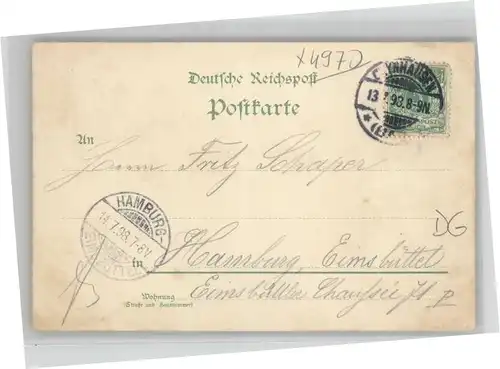 x4970
Deutsche Reichspost
Postkarte
13 7 98. 8-9N.
An
Herrn Fritz Schaper
HAMBURG-
14.7.98.7-8V
in Hamburg, Eimsbüttel
DG
Wohnung
(Straße und Hausnummer)
Eimsbüttler Chaussée 71 P